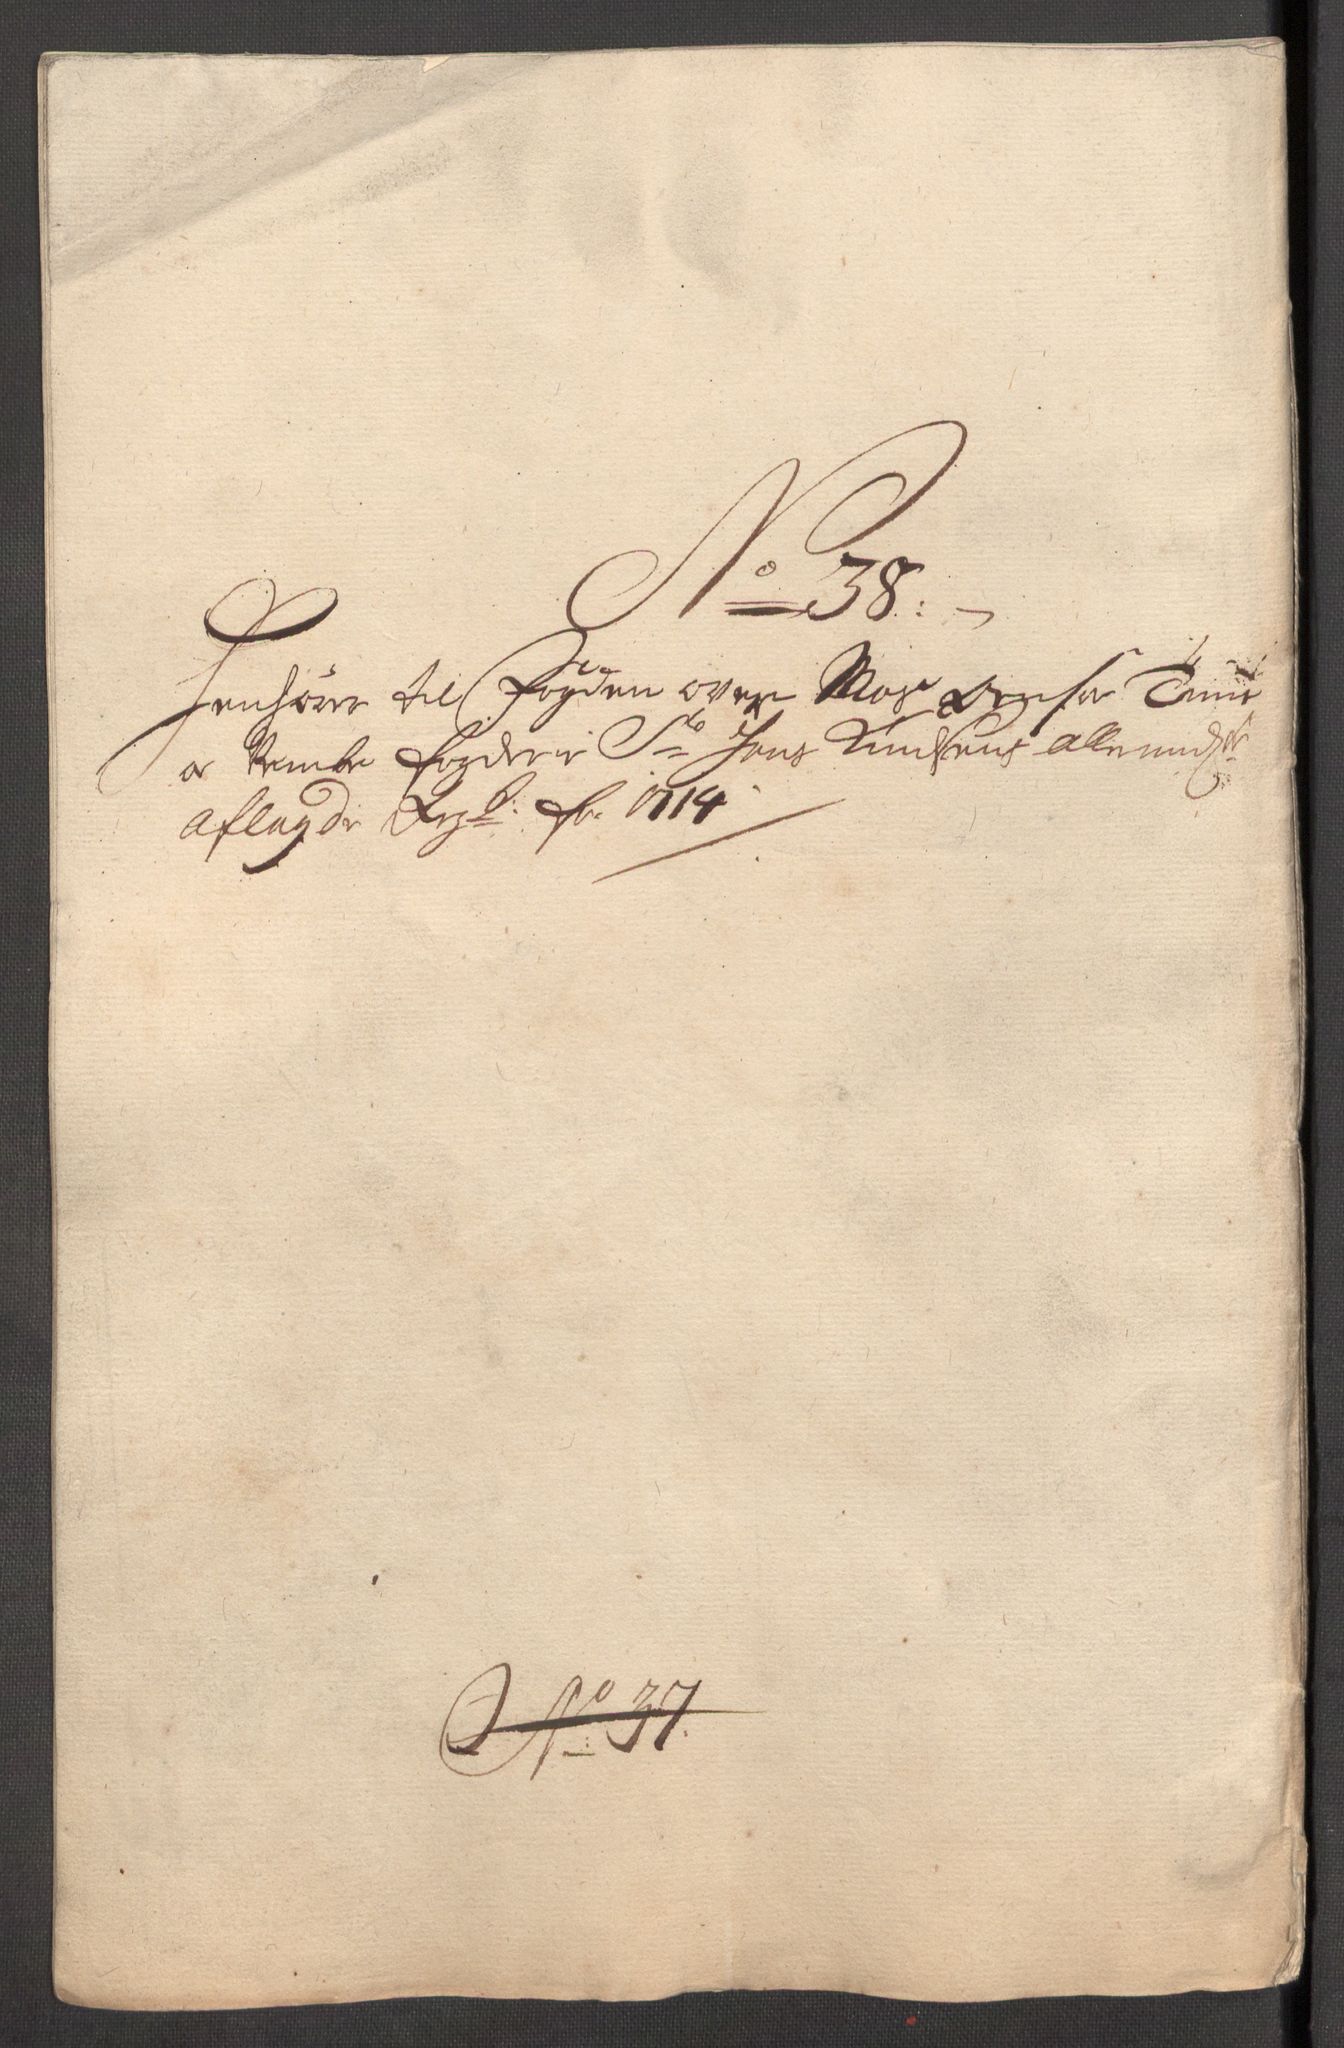 No 38:
Henhörer til Fogden over Moss Onsöe Tune
og Wembe fogderie Sr Jens Knudsens allerundst
aflagde Regsk: for 1714
No 37.